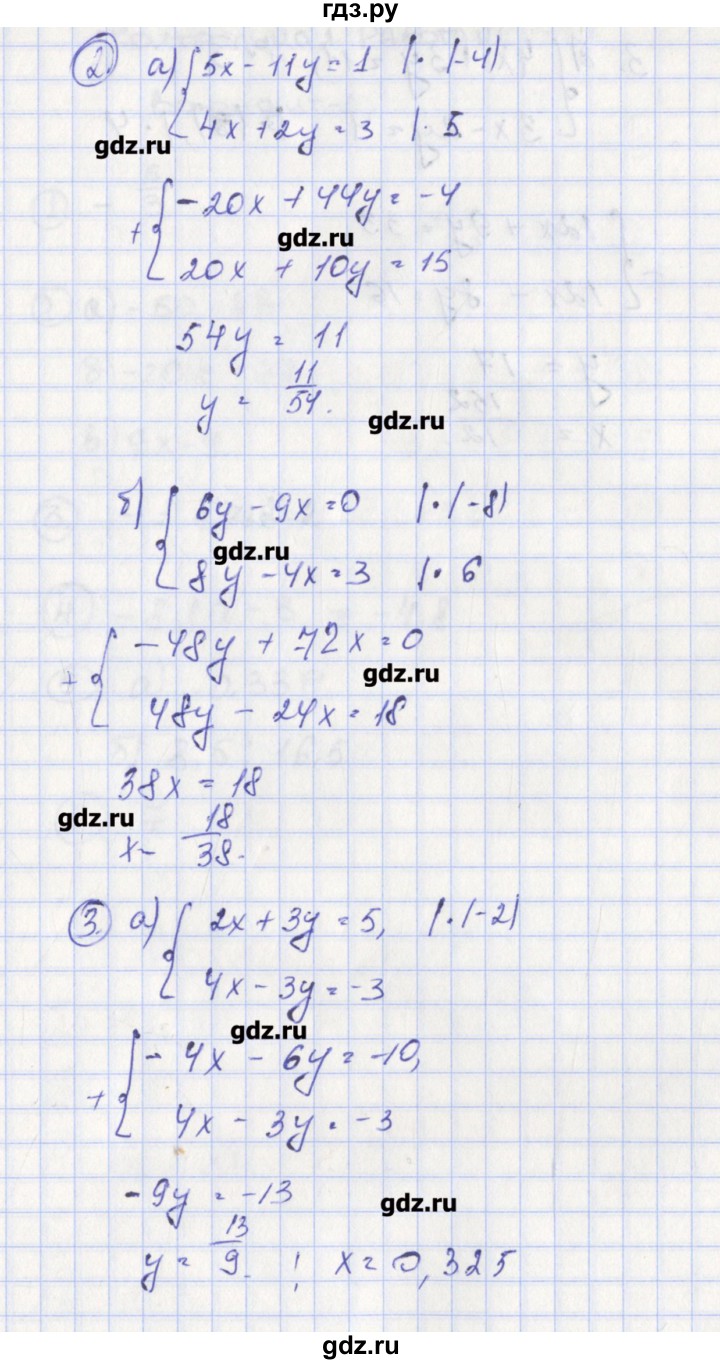 гдз.ру
2. а) { 5x - 11y = 1 | · (-4)
4x + 2y = 3 | · 5
gdz.ru
+ { - 20x + 44y = -4
gdz.ru
20x + 10y = 15
54y = 11
y = 11/54.
gdz.ru
б) { 6y - 9x = 0 | · (-8)
gdz.ru
8y - 4x = 3 | · 6
+ { - 48y + 72x = 0
gdz.ru
48y - 24x = 18
38x = 18
gdz.ru
x - 18/38.
3. а) { 2x + 3y = 5, | · (-2)
4x - 3y = -3
gdz.ru
+ { - 4x - 6y = -10,
4x - 3y = -3
-9y = -13
gdz.ru
y = 13/9. ; x = 0,325
gdz.ru